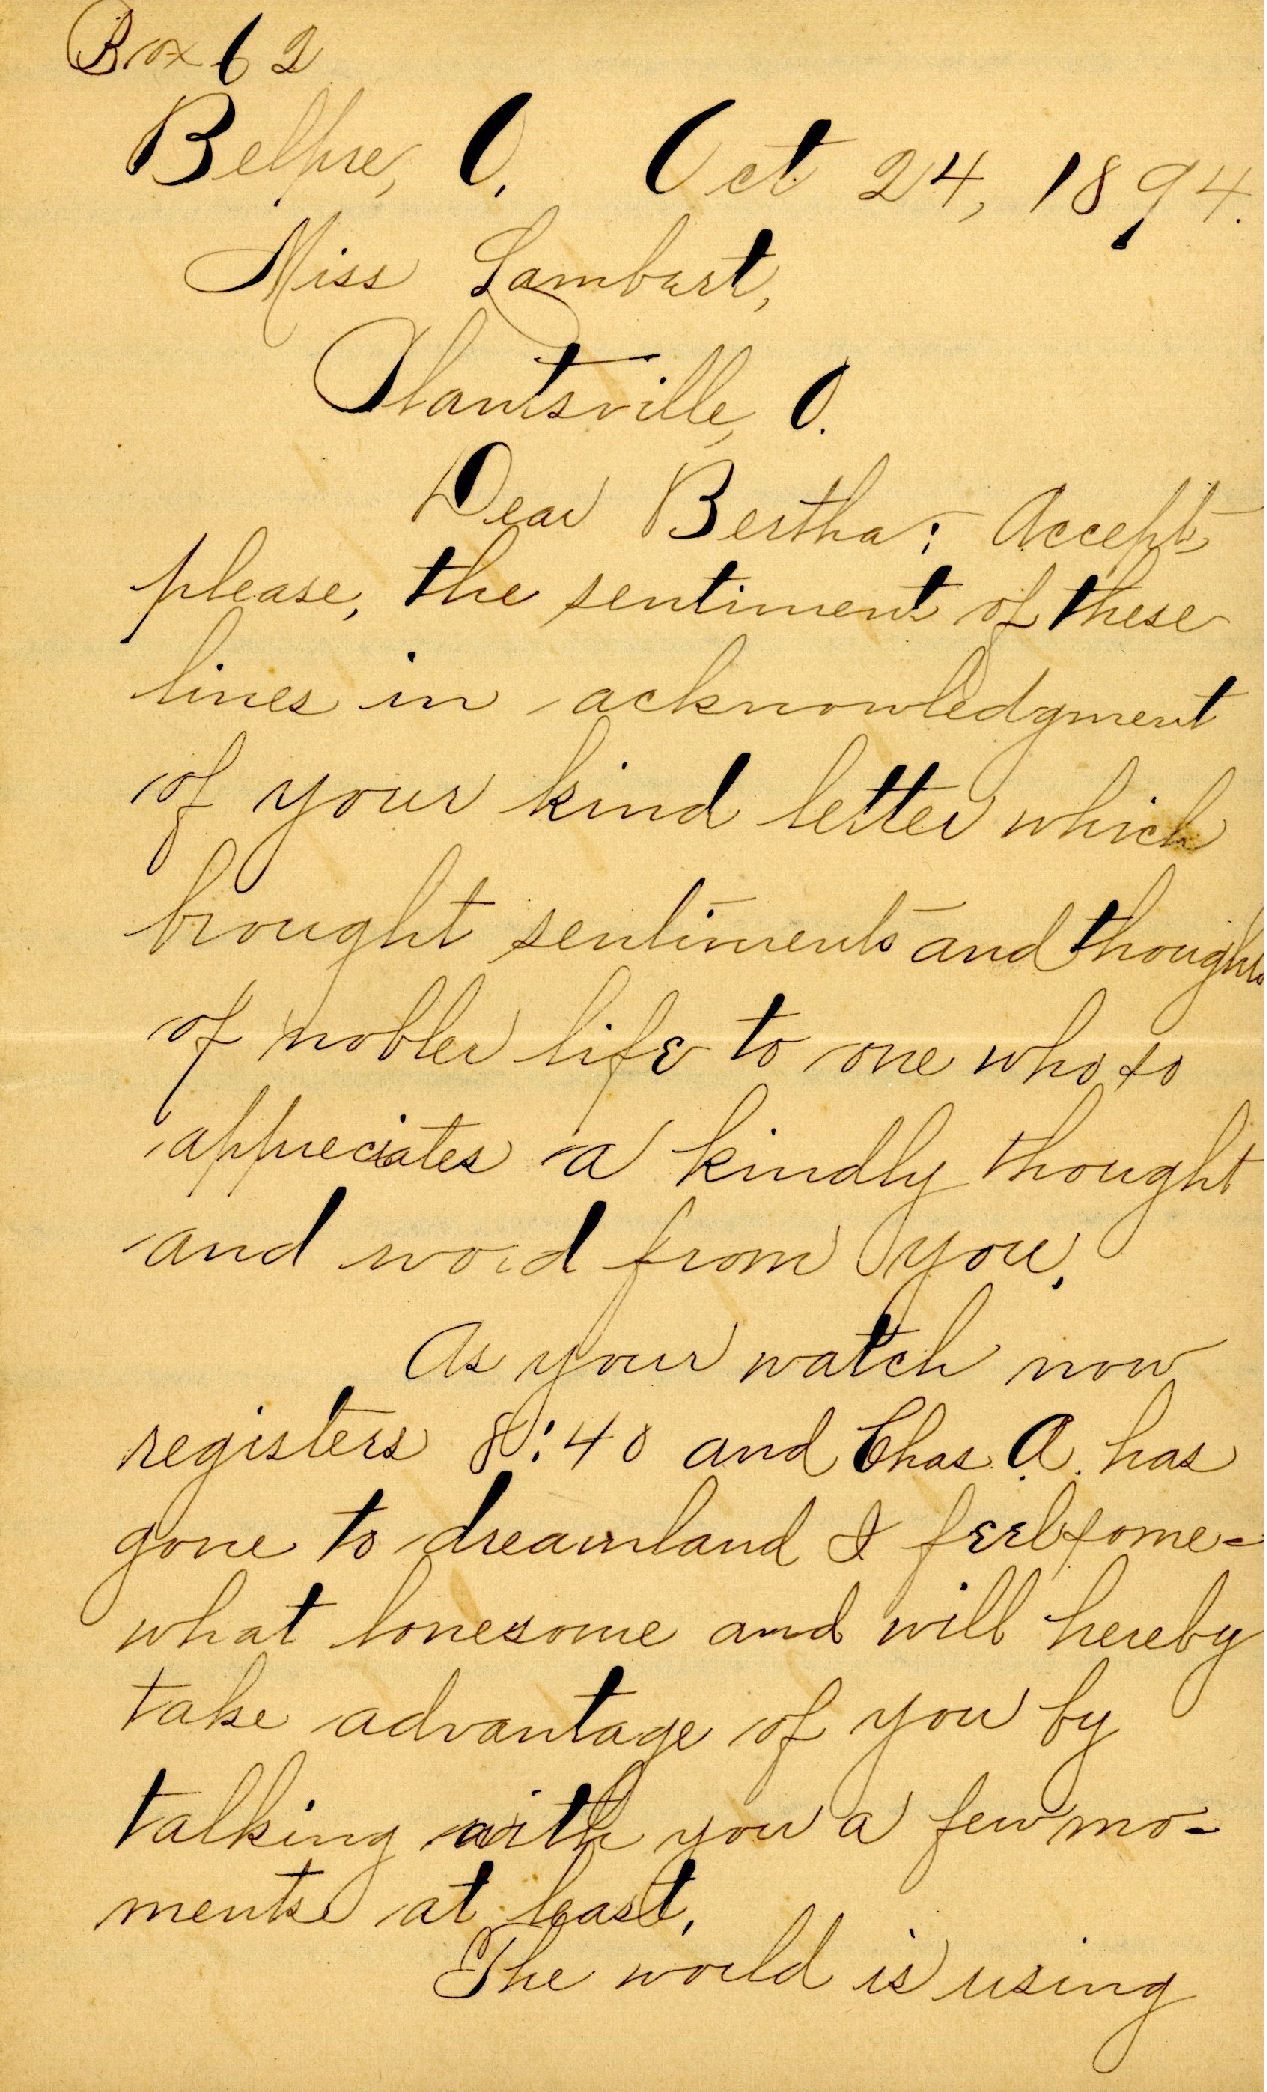 Box 62
Belpre, O. Oct 24, 1894.
Miss Lambert,
Plantsville, O.
Dear Bertha: Accept
please, the sentiment of these
lines in acknowledgment
of your kind letter which
brought sentiments and thoughts
of nobler life to one who so
appreciates a kindly thought
and word from you.
As your watch now
registers 8:40 and Chas. A. has
gone to dreamland I feel some-
what lonesome and will hereby
take advantage of you by
talking with you a few mo-
ments at least.
The world is using